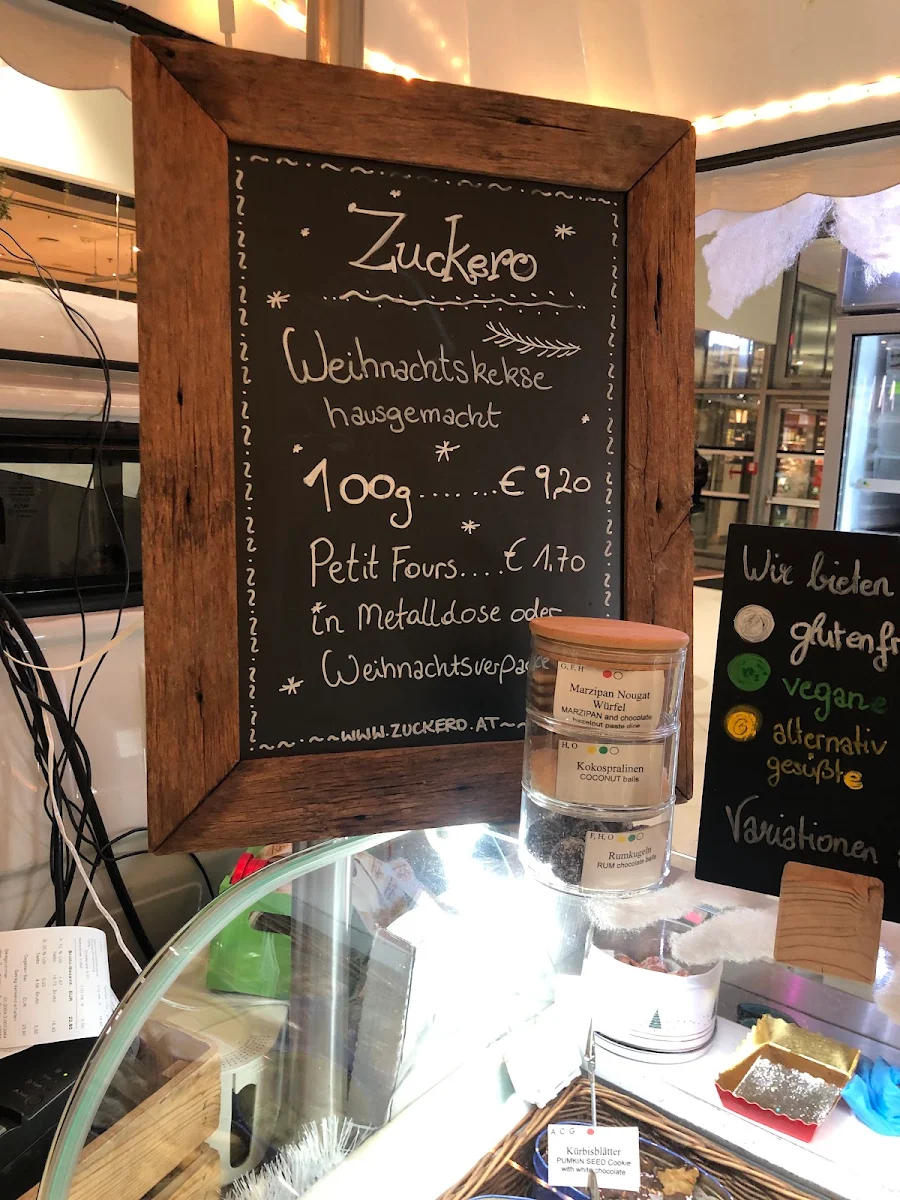 Zuckero
Weihnachtskekse
hausgemacht
100g.......€ 9,20
Petit Fours....€ 1,70
in Metalldose oder
WWW.ZUCKERO.AT
G, F, H
Marzipan Nougat
Würfel
MARZIPAN and chocolate
hazelnut paste dice
H, O
Kokospralinen
COCONUT balls
F, H, O
Rumkugeln
RUM chocolate balls
Wir bieten
glutenfr
vegane
alternativ
gesüßte
Variationen
A C G
Kürbisblätter
PUMPKIN SEED Cookie
with white chocolate